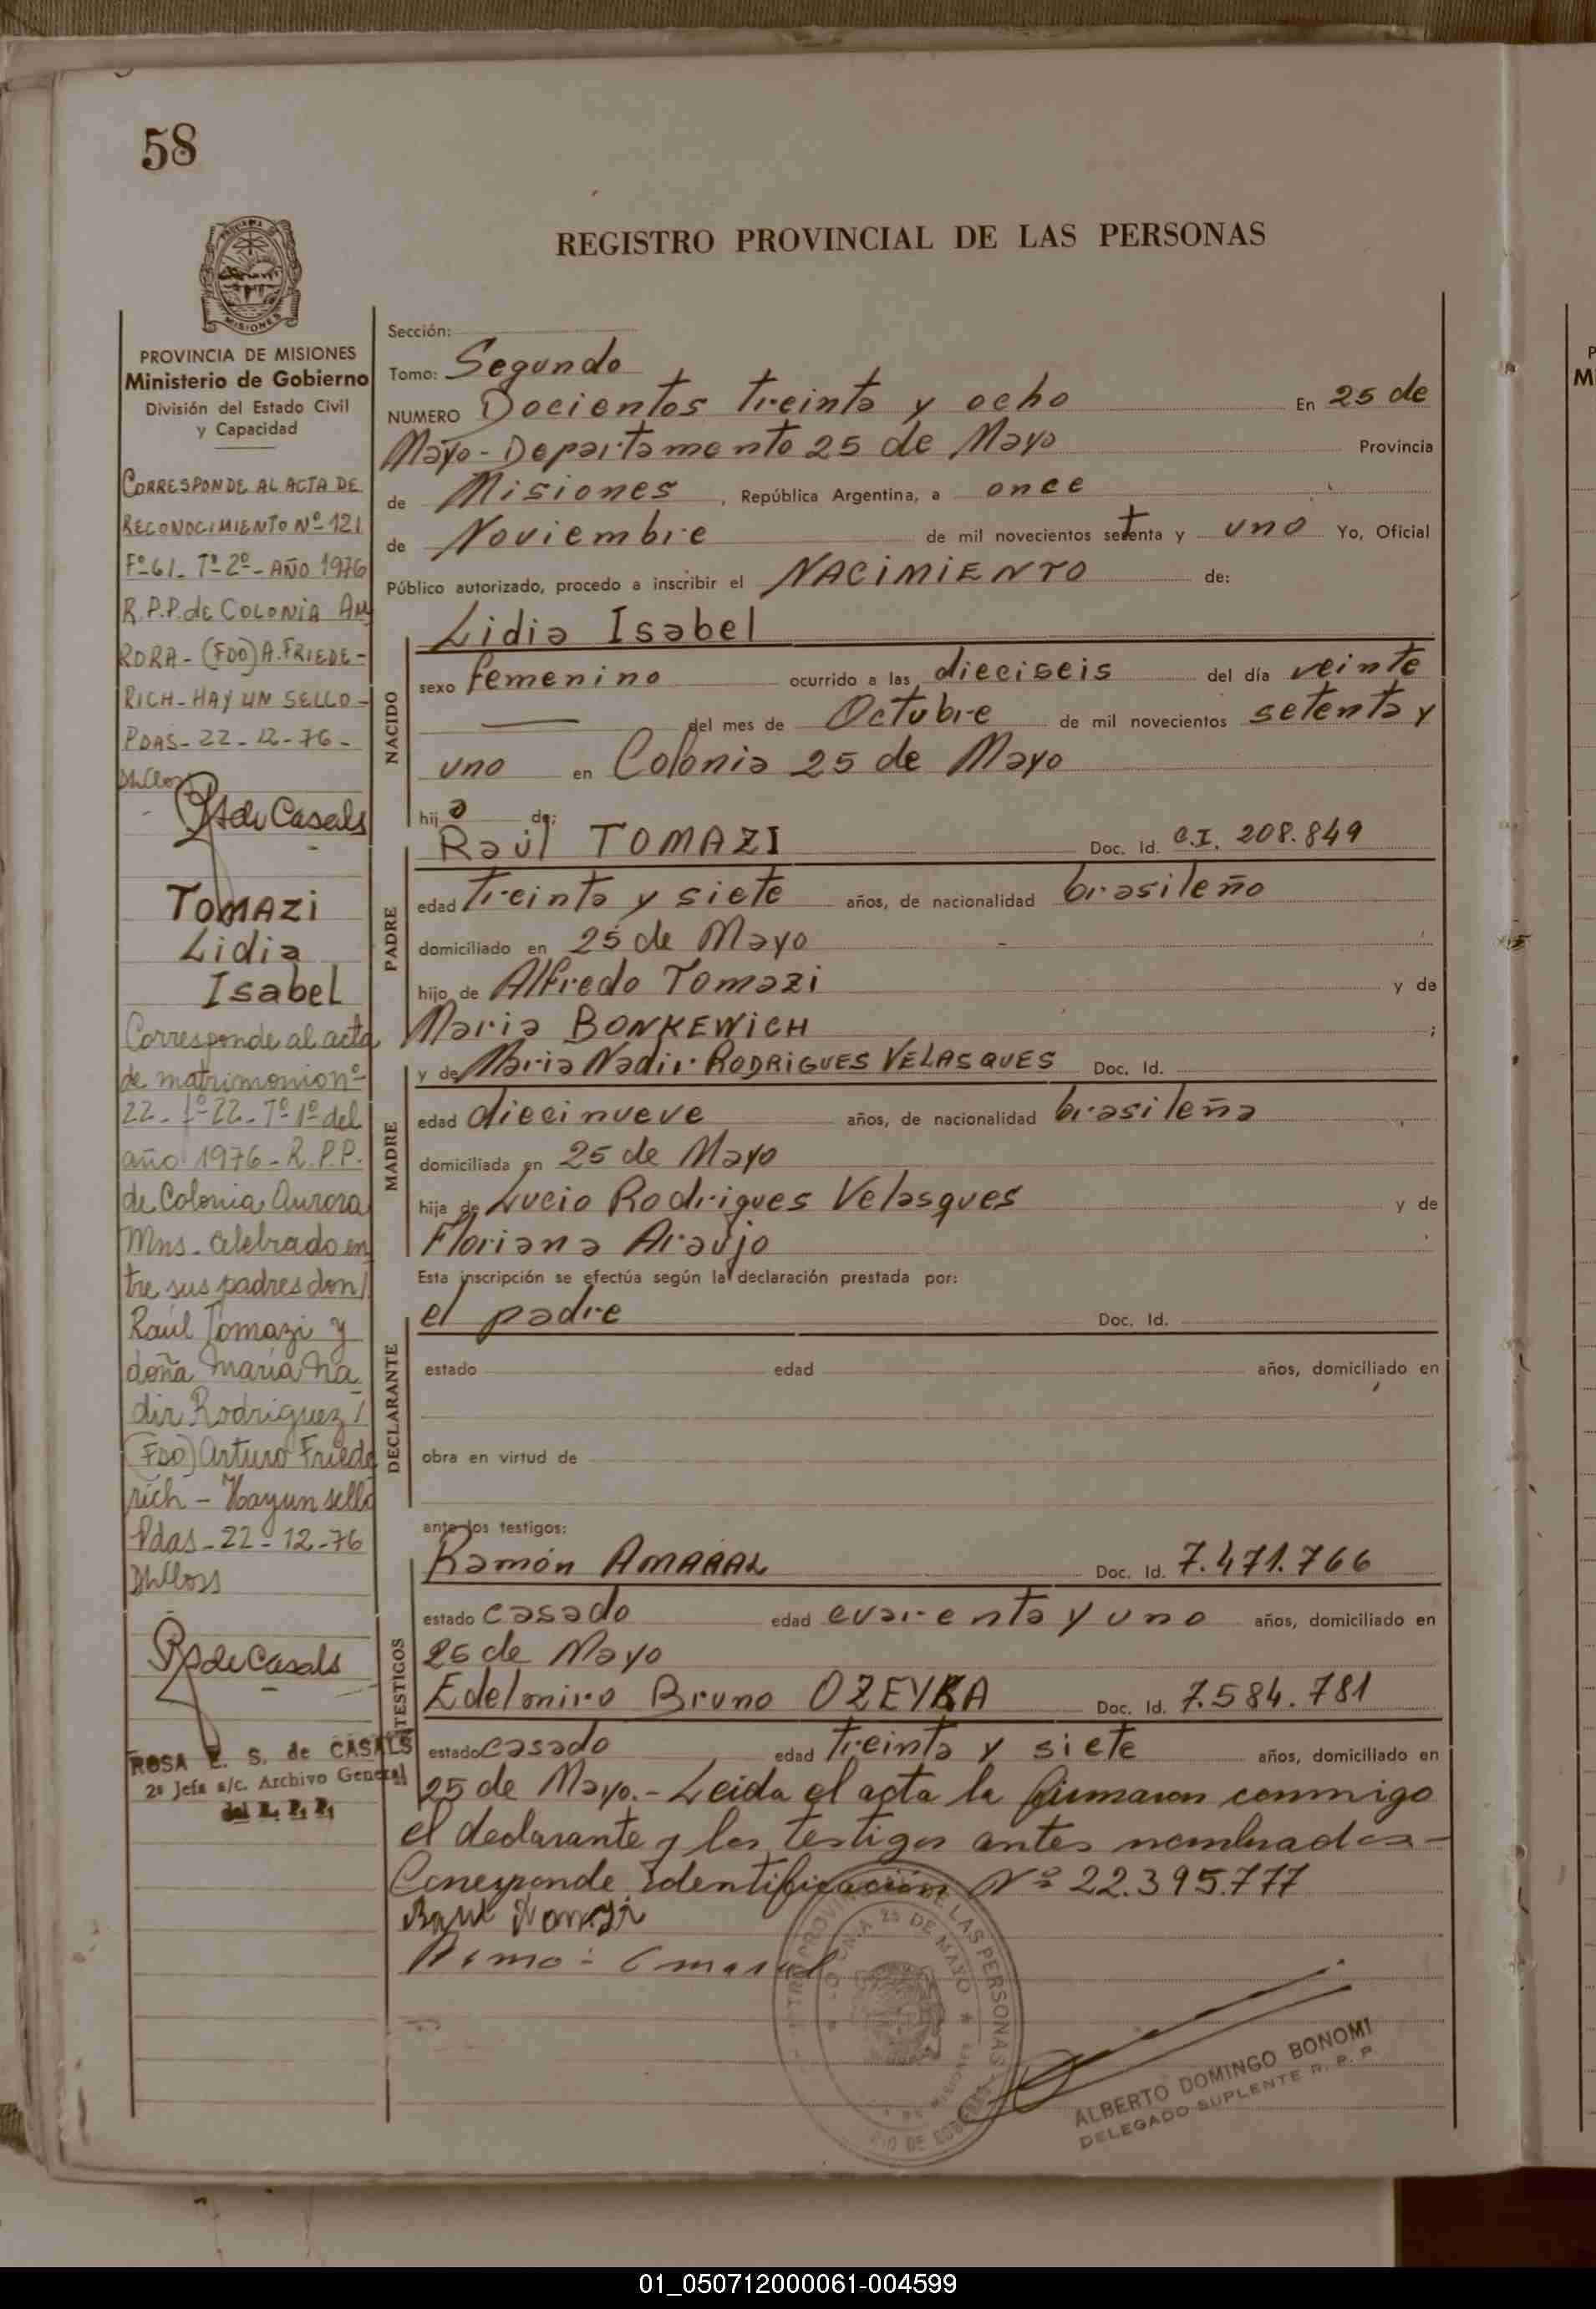 58
REGISTRO PROVINCIAL DE LAS PERSONAS
MISIONES
PROVINCIA DE MISIONES
Ministerio de Gobierno
División del Estado Civil
y Capacidad
CORRESPONDE AL ACTA DE
RECONOCIMIENTO Nº 121
Fº 61 - Tº 2º - AÑO 1976
R.P.P. de COLONIA AU
RORA - (FDO) A. FRIEDE-
RICH - HAY UN SELLO -
PDAS - 22 - 12 - 76 -
de Casals
TOMAZI
Lidia
Isabel
Corresponde al acta
de matrimonio nº
22 - Fº 22 - Tº 1º del
año 1976 - R.P.P.
de Colonia Aurora
Mns - celebrado en
tre sus padres don /
Raúl Tomazi y
doña María Na
dir Rodriguez /
(FDO) Arturo Friede
rich - Hay un sello
Pdas - 22 - 12 - 76
de Casals
ROSA E. S. de CASALS
2ª Jefa a/c. Archivo General
del R. P. P.
Sección:
Tomo: Segundo
NUMERO Docientos treinta y ocho En 25 de
Mayo - Departamento 25 de Mayo Provincia
de Misiones , República Argentina, a once
de Noviembre de mil novecientos setenta y uno Yo, Oficial
Público autorizado, procedo a inscribir el NACIMIENTO de:
NACIDO
Lidia Isabel
sexo femenino ocurrido a las dieciseis del día veinte
— del mes de Octubre de mil novecientos setenta y
uno en Colonia 25 de Mayo
hij a de:
PADRE
Raúl TOMAZI Doc. Id. C.I. 208.849
edad treinta y siete años, de nacionalidad brasileño
domiciliado en 25 de Mayo
hijo de Alfredo Tomazi y de
Maria BONKEWICH ;
MADRE
y de Maria Nadir RODRIGUES VELASQUES Doc. Id.
edad diecinueve años, de nacionalidad brasileña
domiciliada en 25 de Mayo
hija de Lucio Rodrigues Velasques y de
Floriana Araujo
Esta inscripción se efectúa según la declaración prestada por:
DECLARANTE
el padre Doc. Id.
estado edad años, domiciliado en
obra en virtud de
ante los testigos:
TESTIGOS
Ramón AMARAL Doc. Id. 7.471.766
estado casado edad cuarenta y uno años, domiciliado en
25 de Mayo
Edelmiro Bruno OZEYKA Doc. Id. 7.584.781
estado casado edad treinta y siete años, domiciliado en
25 de Mayo.- Leida el acta la firmaron conmigo
el declarante y los testigos antes nombrados -
Corresponde Identificación Nº 22.395.777
ALBERTO DOMINGO BONOMI
DELEGADO SUPLENTE R. P. P.
01_050712000061-004599